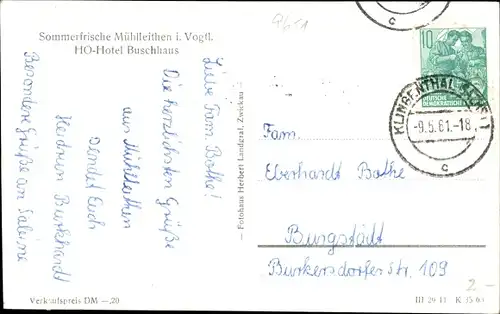 Ph51
Sommerfrische Mühlleithen i. Vogtl.
HO-Hotel Buschhaus
Liebe Fam. Bothe!
Die herzlichsten Grüße
aus Mühlleithen
sendet Euch
Burkhardt
Besondere Grüße an Sabine
Fotohaus Herbert Landgraf, Zwickau
10
DEUTSCHE
DEMOKRATISCHE
KLINGENTHAL
-9.5.61.-18
c
c
Fam.
Eberhardt Bothe
Burgstädt
Burkersdorfer Str. 109
Verkaufspreis DM —,20
III 29 11 K 35 60
2.-